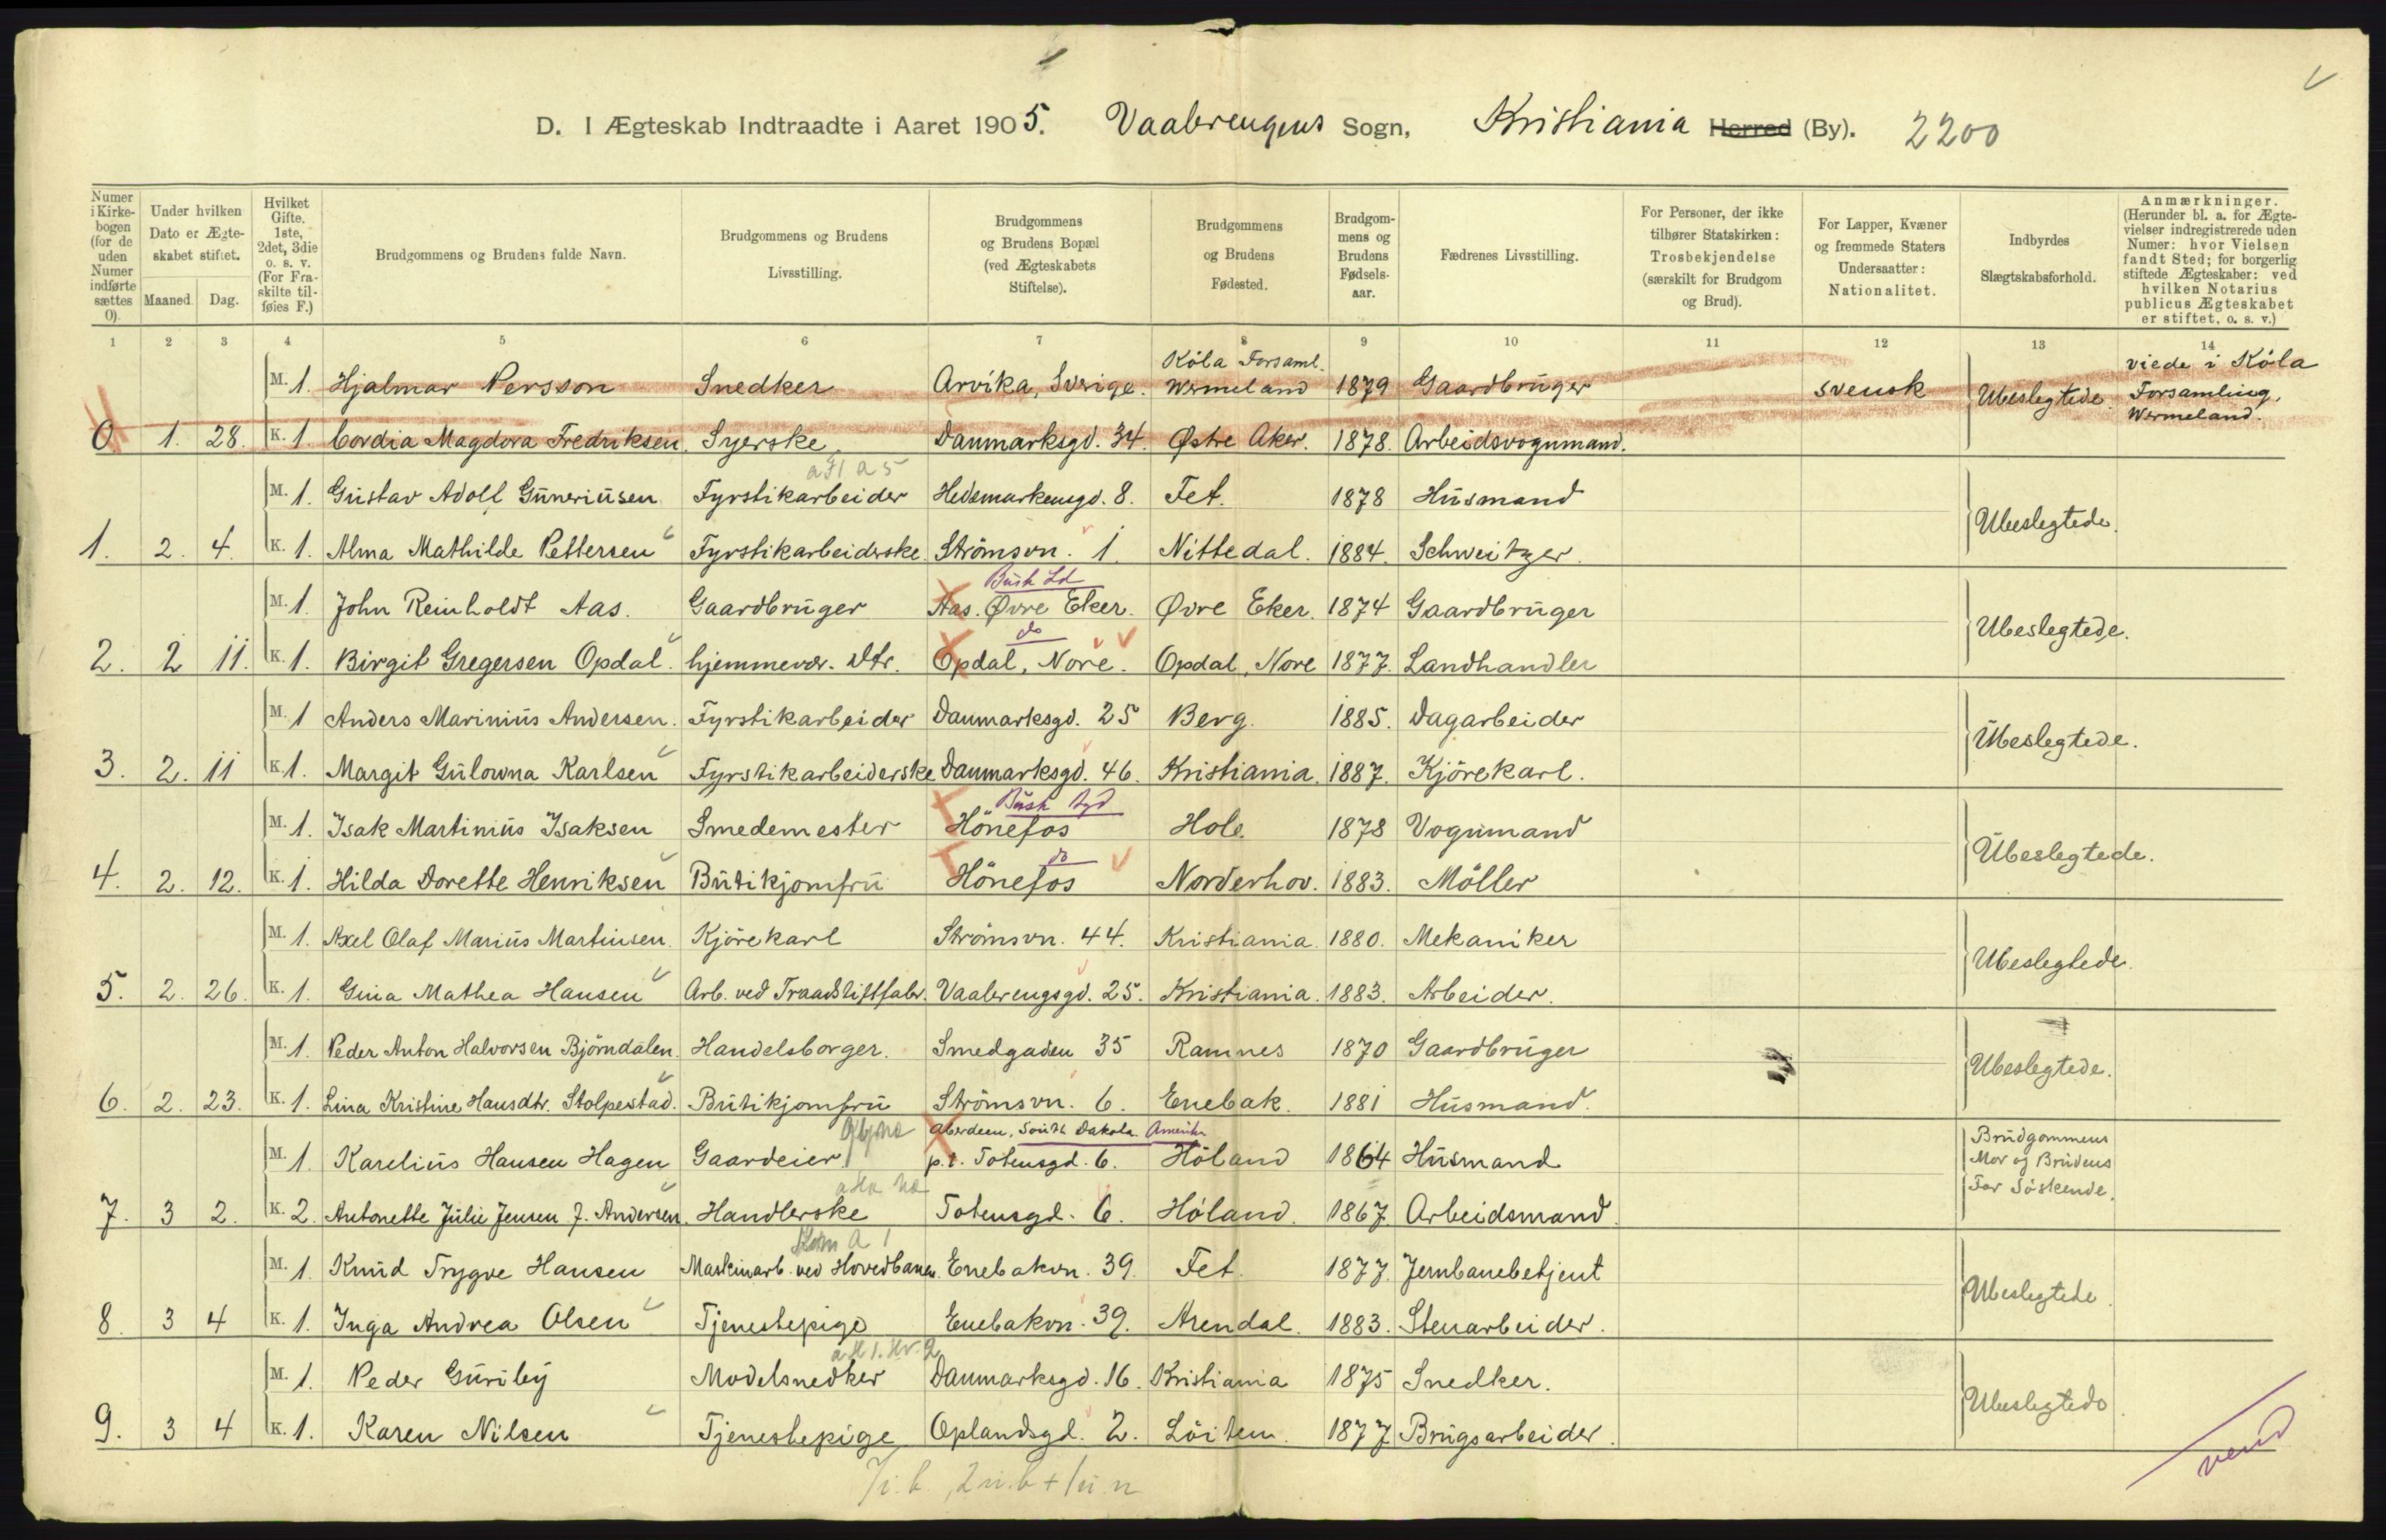 D. I Ægteskab Indtraadte i Aaret 1905. Vaalerengens Sogn, Kristiania Herred (By). 2200
Numer i Kirkebogen (for de uden Numer indførte sættes 0).
Under hvilken Dato er Ægteskabet stiftet.
Maaned. Dag.
Hvilket Gifte. 1ste, 2det, 3die o. s. v. (For Fraskilte tilføies F.)
Brudgommens og Brudens fulde Navn.
Brudgommens og Brudens Livsstilling.
Brudgommens og Brudens Bopæl (ved Ægteskabets Stiftelse).
Brudgommens og Brudens Fødested.
Brudgommens og Brudens Fødselsaar.
Fædrenes Livsstilling.
For Personer, der ikke tilhører Statskirken: Trosbekjendelse (særskilt for Brudgom og Brud).
For Lapper, Kvæner og fremmede Staters Undersaatter: Nationalitet.
Indbyrdes Slægtskabsforhold.
Anmærkninger. (Herunder bl. a. for Ægtevielser indregistrerede uden Numer: hvor Vielsen fandt Sted; for borgerlig stiftede Ægteskaber: ved hvilken Notarius publicus Ægteskabet er stiftet, o. s. v.)
1 2 3 4 5 6 7 8 9 10 11 12 13 14
M. 1. Hjalmar Persson Snedker Arvika, Sverige. Köla Forsaml. Wermeland 1879 Gaardbruger svensk Ubeslegtede. viede i Köla Forsamling, Wermeland.
0 1. 28. K. 1. Cordia Magdora Fredriksen. Syerske Danmarksgd. 34. Østre Aker. 1878. Arbeidsvognmand.
M. 1. Gustav Adolf Guneriusen Fyrstikarbeider Hedemarkensgd. 8. Fet. 1878 Husmand Ubeslegtede.
1. 2. 4. K. 1. Alma Mathilde Pettersen Fyrstikarbeiderske. Strömsvn. 1. Nittedal. 1884. Schweitzer.
Busk Ld
M. 1. John Reinholdt Aas. Gaardbruger Aas. Øvre Eker. Øvre Eker. 1874 Gaardbruger Ubeslegtede.
do
2. 2 11. K. 1. Birgit Gregersen Opdal. hjemmevær. Dtr. Opdal, Nore. Opdal, Nore 1877. Landhandler
M. 1 Anders Marinius Andersen. Fyrstikarbeider Danmarksgd. 25 Berg. 1885. Dagarbeider Ubeslegtede.
3. 2. 11 K. 1. Margit Gulowna Karlsen Fyrstikarbeiderske Danmarksgd. 46. Kristiania. 1887. Kjörekarl.
M. 1. Isak Martinius Isaksen Smedemester Hönefos Hole. 1878 Vognmand Ubeslegtede.
do
4. 2. 12. K. 1. Hilda Dorette Henriksen Butikjomfru Hönefos Norderhov. 1883. Möller
M. 1. Axel Olaf Marius Martinsen. Kjörekarl Strömsvn. 44. Kristiania 1880. Mekaniker Ubeslegtede.
5. 2. 26. K. 1. Gina Mathea Hansen Arb. ved Traadstiftfabr. Vaalerengsgd. 25. Kristiania. 1883. Arbeider.
M. 1. Peder Anton Halvorsen Björndalen. Handelsborger. Smedgaden 35 Ramnes 1870 Gaardbruger Ubeslegtede.
6. 2. 23. K. 1. Lina Kristine Hansdtr. Stolpestad. Butikjomfru Strömsvn. 6. Enebak. 1881 Husmand.
Aberdeen, South Dakota. Amerika
M. 1. Karelius Hansen Hagen Gaardeier p.t. Totensgd. 6. Höland 1864 Husmand Brudgommens Mor og Brudens Far Söskende.
7. 3 2. K. 2. Antonette Julie Jensen f. Andersen. Handlerske Totensgd. 6. Höland. 1867. Arbeidsmand.
M. 1. Knud Trygve Hansen Maskinarb. ved Hovedbanen. Enebakvn. 39. Fet. 1877. Jernbanebetjent Ubeslegtede.
8. 3 4 K. 1. Inga Andrea Olsen Tjenestepige Enebakvn. 39. Arendal. 1883. Stenarbeider.
M. 1. Peder Guriby Modelsnedker Danmarksgd. 16. Kristiania 1875 Snedker. Ubeslegtede.
9. 3 4 K. 1. Karen Nilsen Tjenestepige Oplandsgd. 2. Löiten. 1877 Brugsarbeider.
vend